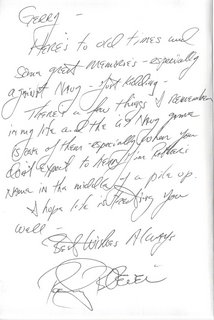 Gerry -
Here's to old times and
some great memories - especially
against Navy - Just kidding -
There's a few things I remember
in my life and the is Navy game
is one of them - especially when you
don't expect to hear
name in the middle of a pile up.
I hope life is treating you
well -
Best Wishes Always